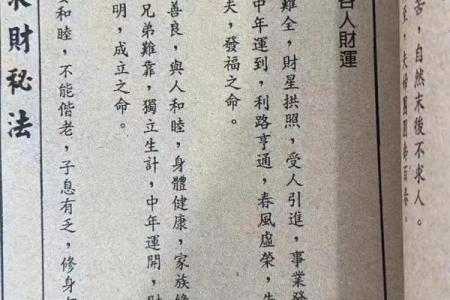 苦，自然末後不求人。
至，夫婦團圓壽百年。
各人財運
難全，財星拱照，受人引進，事業發
中年運到，利路亨通，春風虛榮，失
夫，發福之命。
善良，與人和睦，身體健康，家族緣
兄弟難靠，獨立生計，中年運開，財
明，成立之命。
和睦，不能偕老，子息有乏，修身
求財秘法